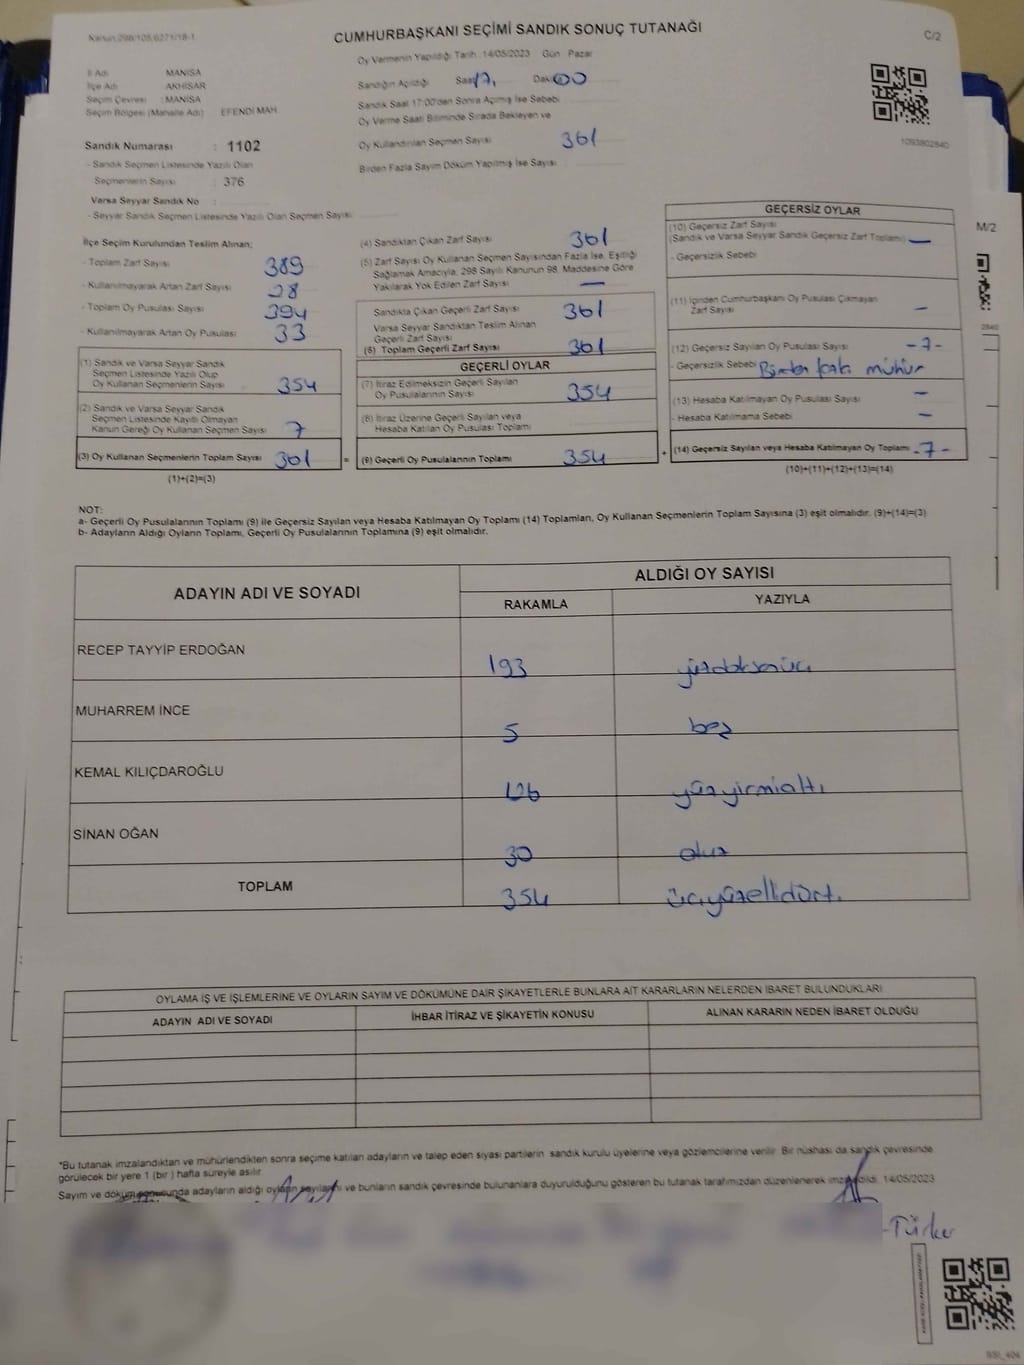 Kanun:298/105,6271/18-1
CUMHURBAŞKANI SEÇİMİ SANDIK SONUÇ TUTANAĞI
C/2
Oy Vermenin Yapıldığı Tarih : 14/05/2023 Gün : Pazar
İl Adı MANİSA
İlçe Adı AKHİSAR
Seçim Çevresi : MANİSA
Seçim Bölgesi (Mahalle Adı) EFENDİ MAH.
Sandığın Açıldığı Saat 17, Dak 00
Sandık Saat 17:00'den Sonra Açımış İse Sebebi
Oy Verme Saati Bitiminde Sırada Bekleyen ve
Oy Kullandırılan Seçmen Sayısı 361
Birden Fazla Sayım Döküm Yapılmış İse Sayısı
1093802840
Sandık Numarası : 1102
- Sandık Seçmen Listesinde Yazılı Olan
Seçmenlerin Sayısı : 376
Varsa Seyyar Sandık No :
- Seyyar Sandık Seçmen Listesinde Yazılı Olan Seçmen Sayısı
İlçe Seçim Kurulundan Teslim Alınan;
- Toplam Zarf Sayısı 389
- Kullanılmayarak Artan Zarf Sayısı 28
- Toplam Oy Pusulası Sayısı 394
- Kullanılmayarak Artan Oy Pusulası 33
(1) Sandık ve Varsa Seyyar Sandık
Seçmen Listesinde Yazılı Olup
Oy Kullanan Seçmenlerin Sayısı 354
(2) Sandık ve Varsa Seyyar Sandık
Seçmen Listesinde Kayıtlı Olmayan
Kanun Gereği Oy Kullanan Seçmen Sayısı 7
(3) Oy Kullanan Seçmenlerin Toplam Sayısı 361 =
(1)+(2)=(3)
(4) Sandıktan Çıkan Zarf Sayısı 361
(5) Zarf Sayısı Oy Kullanan Seçmen Sayısından Fazla İse, Eşitliği
Sağlamak Amacıyla, 298 Sayılı Kanunun 98. Maddesine Göre
Yakılarak Yok Edilen Zarf Sayısı —
Sandıkta Çıkan Geçerli Zarf Sayısı 361
Varsa Seyyar Sandıktan Teslim Alınan
Geçerli Zarf Sayısı
(6) Toplam Geçerli Zarf Sayısı 361
GEÇERLİ OYLAR
(7) İtiraz Edilmeksizin Geçerli Sayılan
Oy Pusulalarının Sayısı 354
(8) İtiraz Üzerine Geçerli Sayılan veya
Hesaba Katılan Oy Pusulası Toplamı
(9) Geçerli Oy Pusulalarının Toplamı 354 +
GEÇERSİZ OYLAR
(10) Geçersiz Zarf Sayısı
(Sandık ve Varsa Seyyar Sandık Geçersiz Zarf Toplamı) —
- Geçersizlik Sebebi
(11) İçinden Cumhurbaşkanı Oy Pusulası Çıkmayan
Zarf Sayısı —
(12) Geçersiz Sayılan Oy Pusulası Sayısı -7-
- Geçersizlik Sebebi Birden fazla mühür
(13) Hesaba Katılmayan Oy Pusulası Sayısı —
- Hesaba Katılmama Sebebi —
(14) Geçersiz Sayılan veya Hesaba Katılmayan Oy Toplamı -7-
(10)+(11)+(12)+(13)=(14)
M/2
2840
NOT:
a- Geçerli Oy Pusulalarının Toplamı (9) ile Geçersiz Sayılan veya Hesaba Katılmayan Oy Toplamı (14) Toplamları, Oy Kullanan Seçmenlerin Toplam Sayısına (3) eşit olmalıdır. (9)+(14)=(3)
b- Adayların Aldığı Oyların Toplamı, Geçerli Oy Pusulalarının Toplamına (9) eşit olmalıdır.
ADAYIN ADI VE SOYADI ALDIĞI OY SAYISI
RAKAMLA YAZIYLA
RECEP TAYYİP ERDOĞAN 193 yüzdoksanüç
MUHARREM İNCE 5 beş
KEMAL KILIÇDAROĞLU 126 yüzyirmialtı
SİNAN OĞAN 30 otuz
TOPLAM 354 üçyüzellidört.
OYLAMA İŞ VE İŞLEMLERİNE VE OYLARIN SAYIM VE DÖKÜMÜNE DAİR ŞİKAYETLERLE BUNLARA AİT KARARLARIN NELERDEN İBARET BULUNDUKLARI
ADAYIN ADI VE SOYADI İHBAR İTİRAZ VE ŞİKAYETİN KONUSU ALINAN KARARIN NEDEN İBARET OLDUĞU
*Bu tutanak imzalandıktan ve mühürlendikten sonra seçime katılan adayların ve talep eden siyasi partilerin sandık kurulu üyelerine veya gözlemcilerine verilir. Bir nüshası da sandık çevresinde
görülecek bir yere 1 (bir) hafta süreyle asılır.
Sayım ve döküm sonucunda adayların aldığı oyların sayılarını ve bunların sandık çevresinde bulunanlara duyurulduğunu gösteren bu tutanak tarafımızdan düzenlenerek imzalandı. 14/05/2023
-Türker
SSI_404